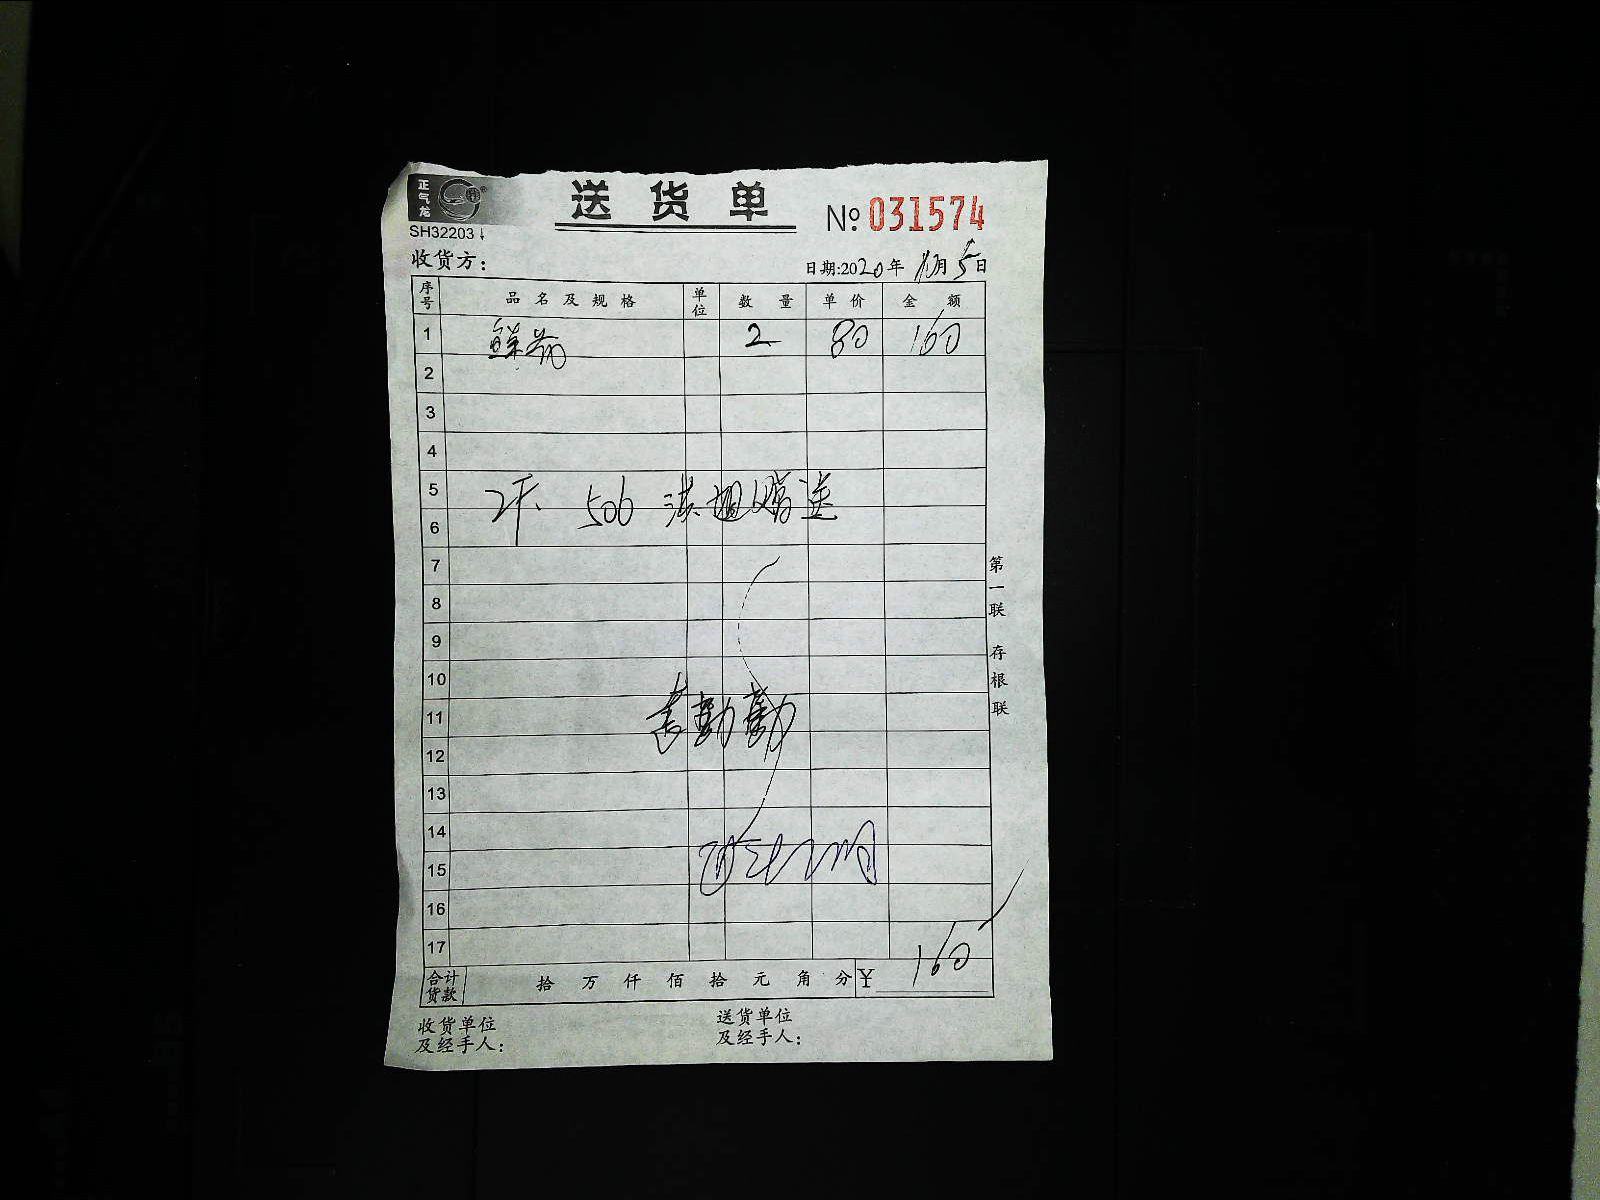 正气龙
SH32203
送货单
№ 031574
收货方：
日期:2020年10月5日
序号 品名及规格 单位 数量 单价 金额
1 鲜花 2 80 160
2
3
4
5
6
506 赠送
7
8
9
10
11
勤勤
12
13
14
15
16
17
160
合计货款 拾 万 仟 佰 拾 元 角 分 ¥
收货单位
及经手人：
送货单位
及经手人：
第一联 存根联